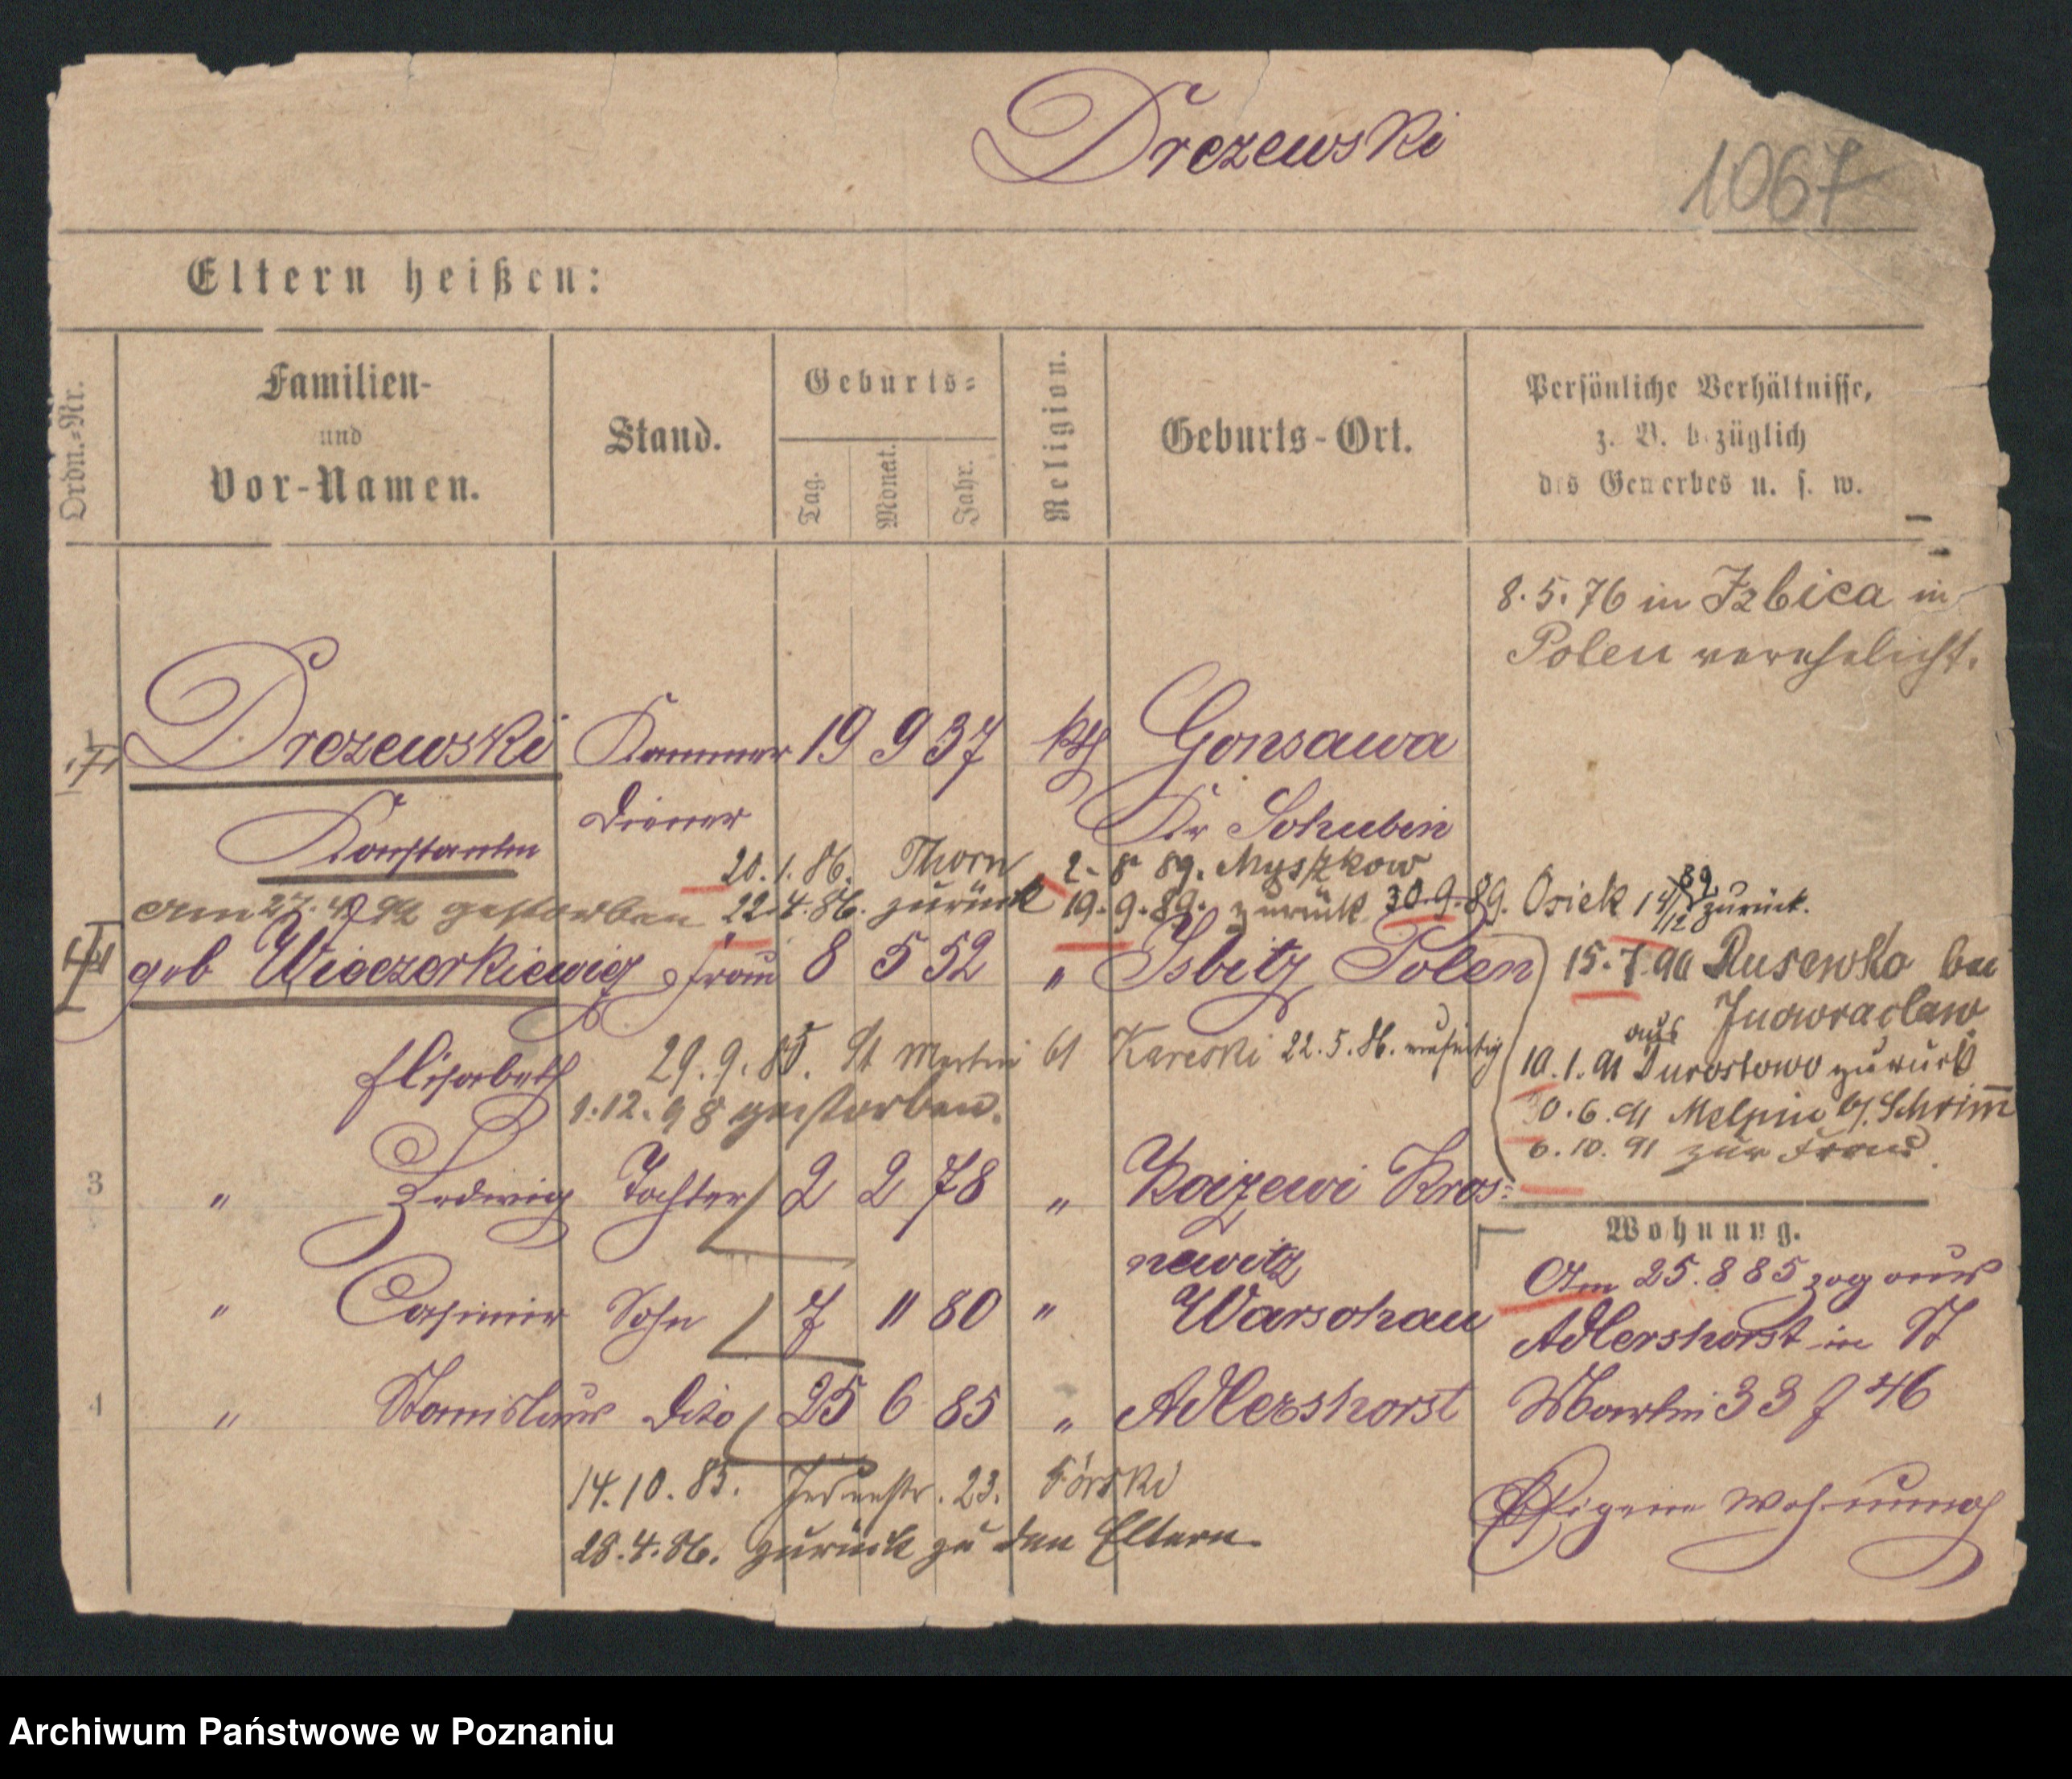 Drezewski
1067
Eltern heißen:
Ordn.-Nr.
Familien-
und
Vor-Namen.
Stand.
Geburts-
Tag.
Monat.
Jahr.
Religion.
Geburts-Ort.
Persönliche Verhältnisse,
z. B. bezüglich
des Gewerbes u. s. w.
8.5.76 in Izbica in
Polen verehelicht.
Drezewski Kammer 19 9 37 kth Gonsawa
Diener Kr Schubin
Konstantin
20.1.86. Thorn 2. 8 89. Myszkow
am 27. 4 92 gestorben 22.4.86. zurück 19.9.89. zurück 30.9.89. Osiek 14/12 89 zurück.
geb Wieczorkiewicz Frau 8 5 52 " Isbitz Polen
15.7.90 Rusewko bei
Inowraclaw
Elisabeth 29.9.85. St Martin 61 Kareski 22.5.86.
aus
10.1.91 zurück
1.12.98 gestorben.
0.6.91 Melpin b/. Schrimm
6.10.91 zur Frau
3 " Hedwig Tochter 2 2 78 " Kros-
newitz
Wohnung.
Am 25.8 85 zog aus
" Casimir Sohn 7 11 80 " Warschau
Adlershorst in St
4 " Stanislaus dito 25 6 85 " Adlershorst
Martin 33 f 46
14.10.85. 23. Górski
Eigene Wohnung
28.4.86. zurück zu den Eltern
Archiwum Państwowe w Poznaniu